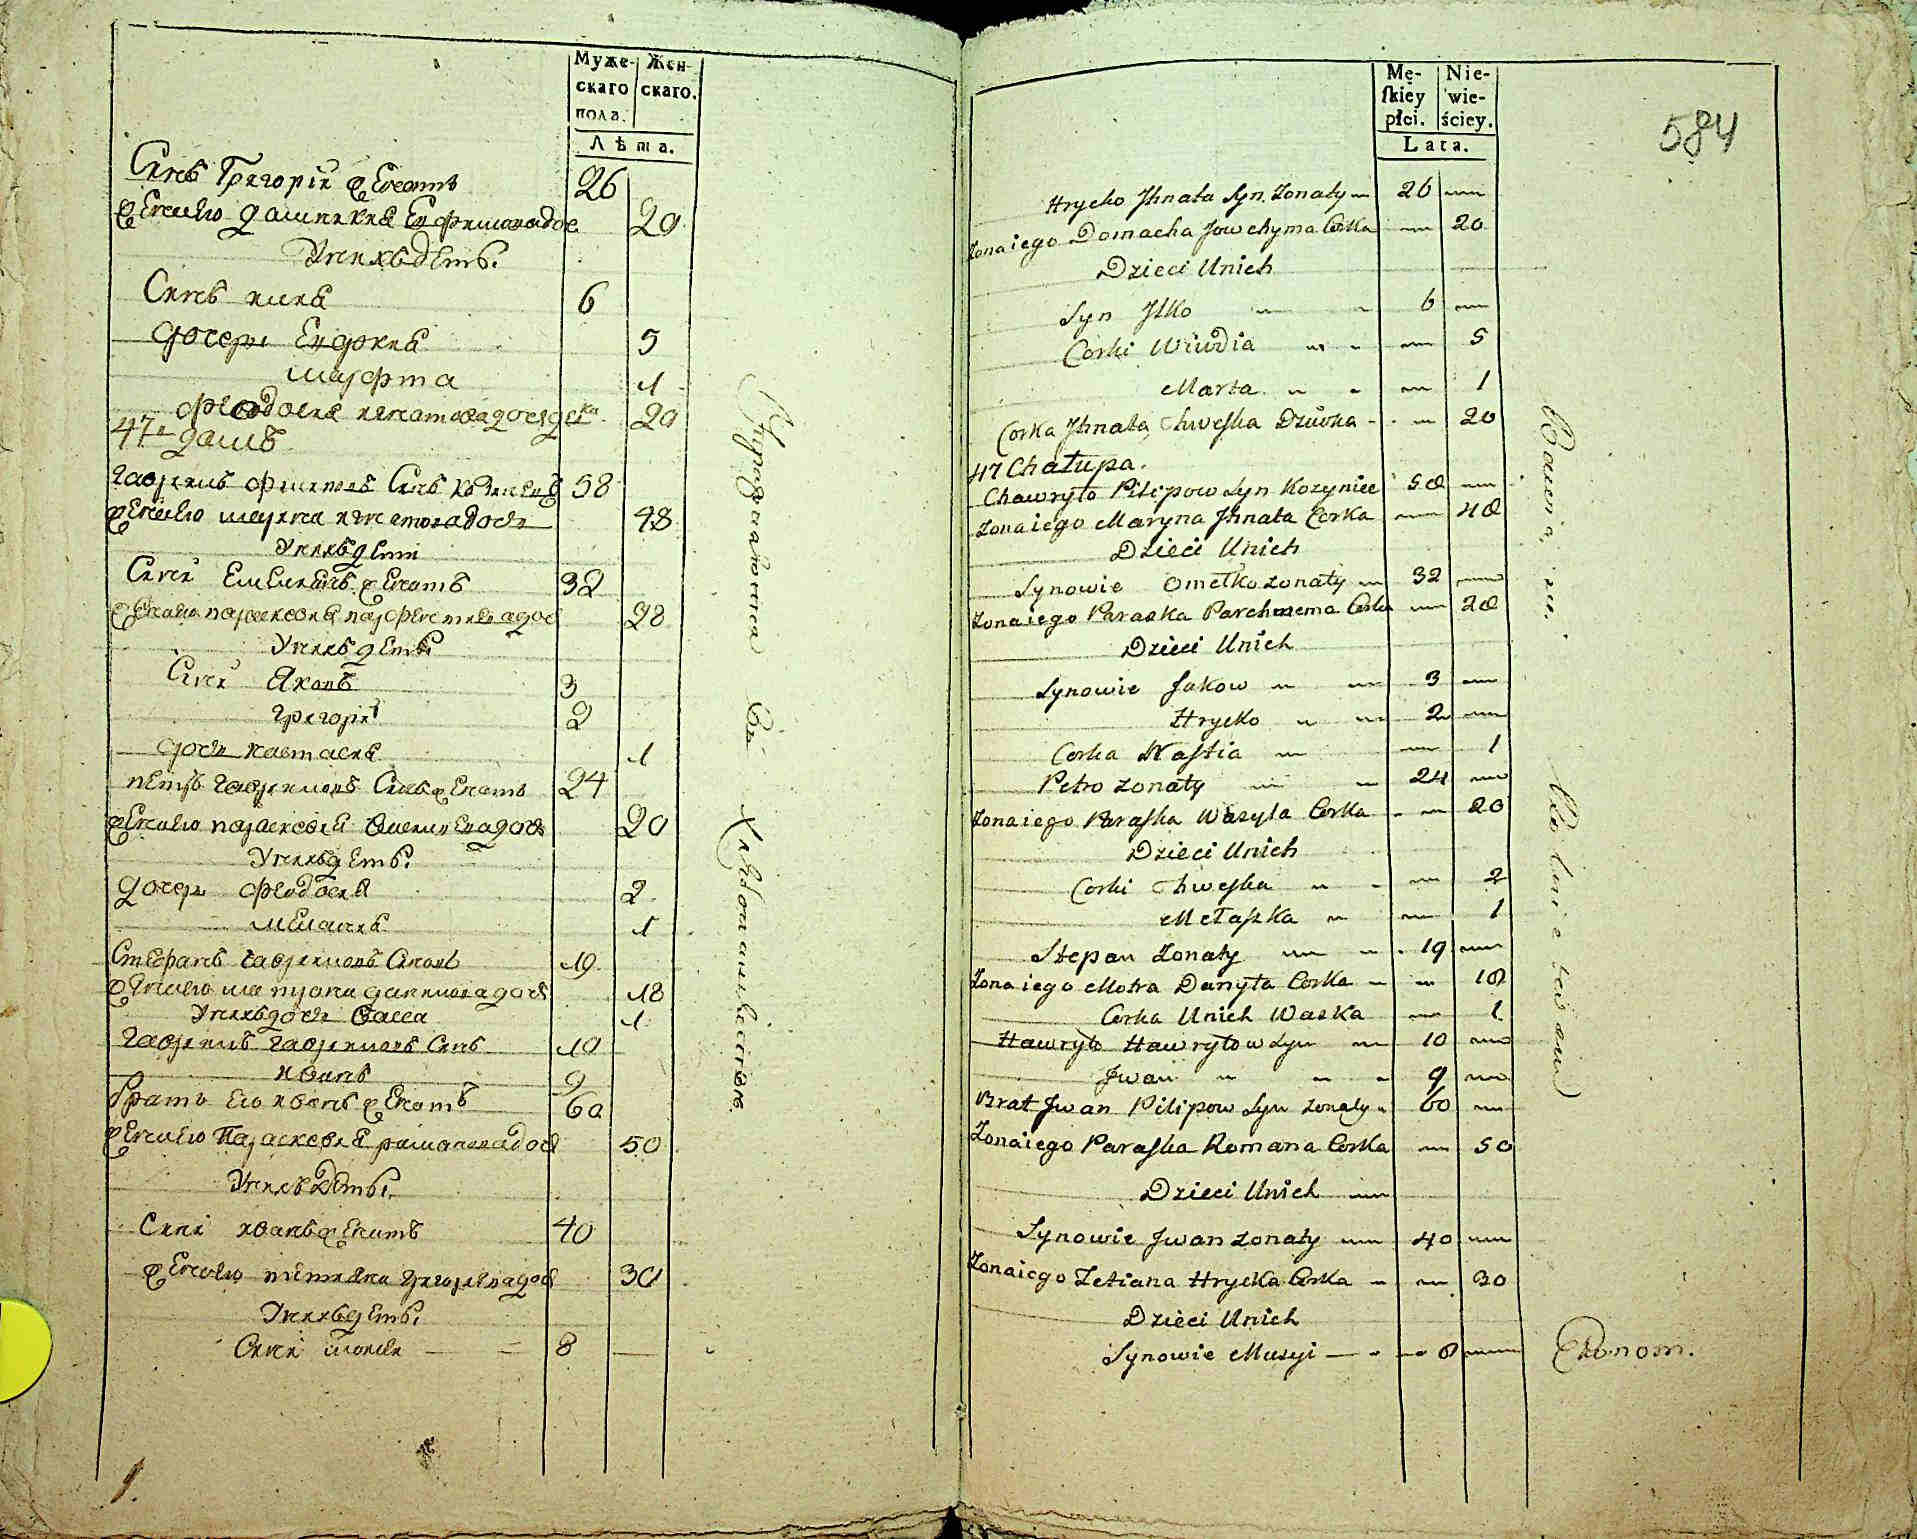 Муже-
скаго
пола.
Жен-
скаго.
Лѣта.
Синъ Григорій женатъ 26
жена его домникия Ефимова доч 20
У нихъ дѣтѣ.
Синъ илия 6
Дочери Евдокия 5
марфта 1
фѣодосия игнатова дочь 20
47. домъ
гаврилъ филиповъ Синъ козинецъ 58
жена его марина игнатова доч 48
У нихъ дѣти
Сини Емелианъ женатъ 32
жена его параскевия 28
У нихъ дѣтѣ
Сини Яковъ 3
григорій 2
дочь настасия 1
петръ гавриловъ Синъ женатъ 24
жена его параскевия василиева доч 20
У нихъ дѣтѣ.
дочери фѣодосия 2
мелания 1
Стефанъ гавриловъ Синъ 19
жена его данилова доч 18
У нихъ дочь Васса 1
гаврилъ гавриловъ Синъ 10
иванъ 9
братъ его иванъ женатъ 60
жена его Параскевия романова доч 50
У нихъ дѣтѣ.
Сини иванъ женатъ 40
жена его григориева доч 30
У нихъ дѣтѣ.
Сини моисей 8
Mę-
skiey
płci.
Nie-
wie-
ściey.
Lata.
584
Hrycko Jhnata Syn Zonaty 26
Zona iego Domacha Jowchyma Corka 20
Dzieci Unich
Syn Jlko 6
Corki Wiwdia 5
Marta 1
Corka Jhnata Chweska Dziwka 20
47 Chałupa.
Chawryło Pilipow Syn Kozyniec 58
Zona iego Maryna Jhnata Corka 48
Dzieci Unich
Synowie Omelko zonaty 32
Zona iego Paraska Parchmema Corka 28
Dzieci Unich
Synowie Jakow 3
Hrycko 2
Corka Nastia 1
Petro zonaty 24
Zona iego Paraska Wasyla Corka 20
Dzieci Unich
Corki Chweska 2
Melaszka 1
Stepan Zonaty 19
Zona iego Motra Danyła Corka 18
Corka Unich Waska 1
Hawryło Hawryłow Syn 10
Jwan 9
Brat Jwan Pilipow Syn zonaty 60
Zona iego Paraska Romana Corka 50
Dzieci Unich
Synowie Jwan zonaty 40
Zona iego Tetiana Hrycka Corka 30
Dzieci Unich
Synowie Musyi 8
Ekonom.